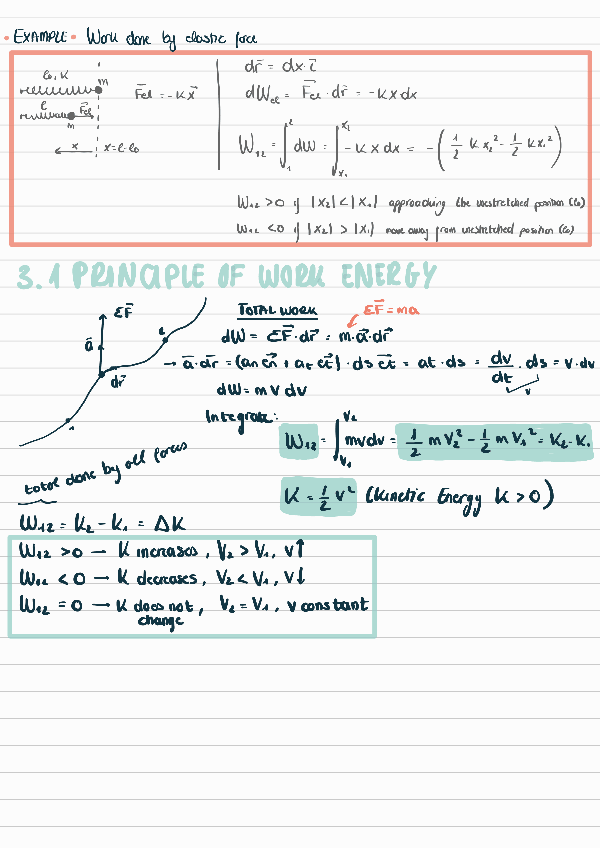 • EXAMPLE • Work done by elastic force
l₀, K
m
F⃗el = -K x⃗
l
F⃗el
m
x
x = l - l₀
dr⃗ = dx · i⃗
dWel = F⃗el · dr⃗ = -K x dx
W₁₂ = ∫₁² dW = ∫ₓ₁ˣ² -K x dx = -(1/2 K x₂² - 1/2 K x₁²)
W₁₂ > 0 if |x₂| < |x₁| approaching the unstretched position (l₀)
W₁₂ < 0 if |x₂| > |x₁| move away from unstretched position (l₀)
3.1 PRINCIPLE OF WORK ENERGY
ΣF⃗
a⃗
dr⃗
1
2
TOTAL WORK
ΣF⃗ = ma
dW = ΣF⃗ · dr⃗ = m · a⃗ · dr⃗
→ a⃗ · dr⃗ = (an en⃗ + at et⃗) · ds et⃗ = at · ds = dv/dt · ds = v · dv
v
dW = m v dv
Integrate:
W₁₂ = ∫ᵥ₁ⱽ² mvdv = 1/2 m V₂² - 1/2 m V₁² = K₂ - K₁
total done by all forces
K = 1/2 v² (Kinetic Energy K > 0)
W₁₂ = K₂ - K₁ = ΔK
W₁₂ > 0 → K increases, V₂ > V₁, v↑
W₁₂ < 0 → K decreases, V₂ < V₁, v↓
W₁₂ = 0 → K does not change, V₂ = V₁, v constant